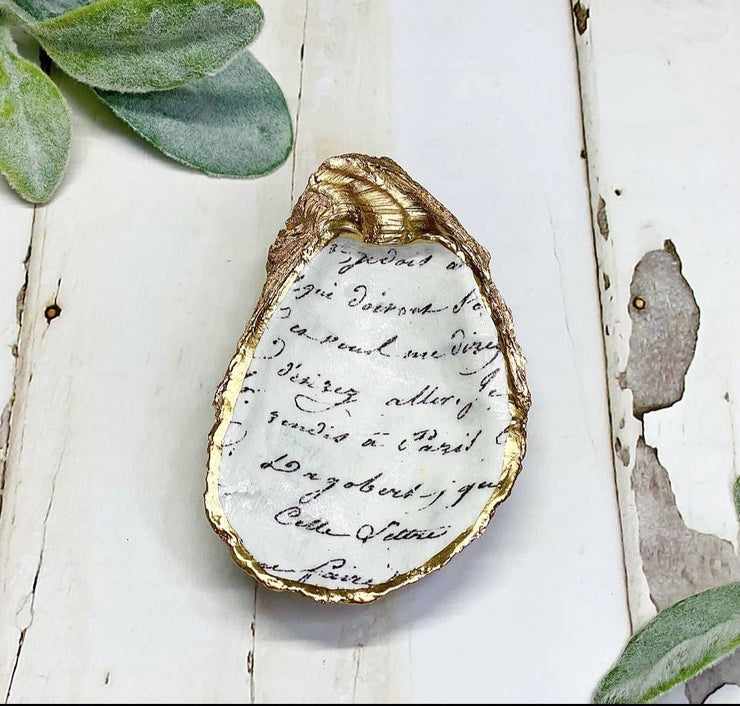 je dois a
qui doivent s'e
me dire
désirez aller, j
rendis à Paris
Dagobert, j qu
Cette Lettre
faire